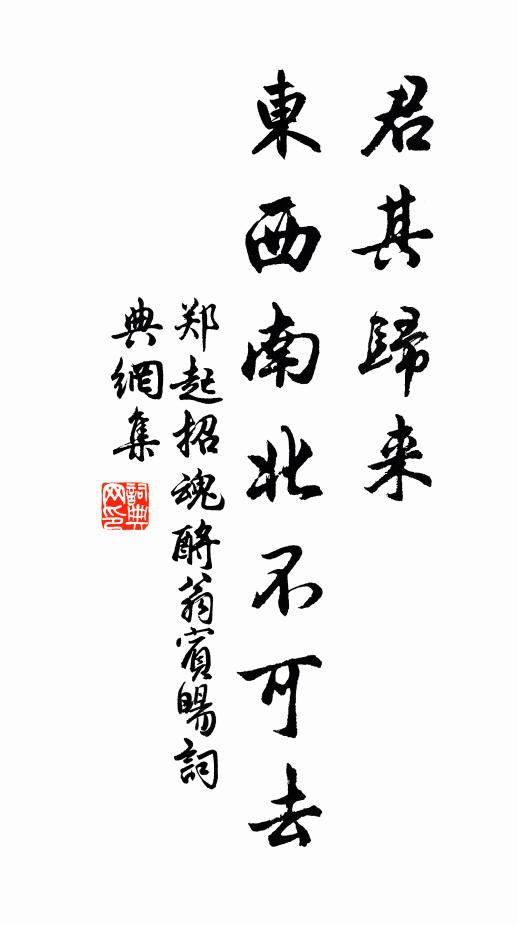 君其歸来
東西南北不可去
郑起招魂酹翁賓暘詞
典網集
詞典
网印